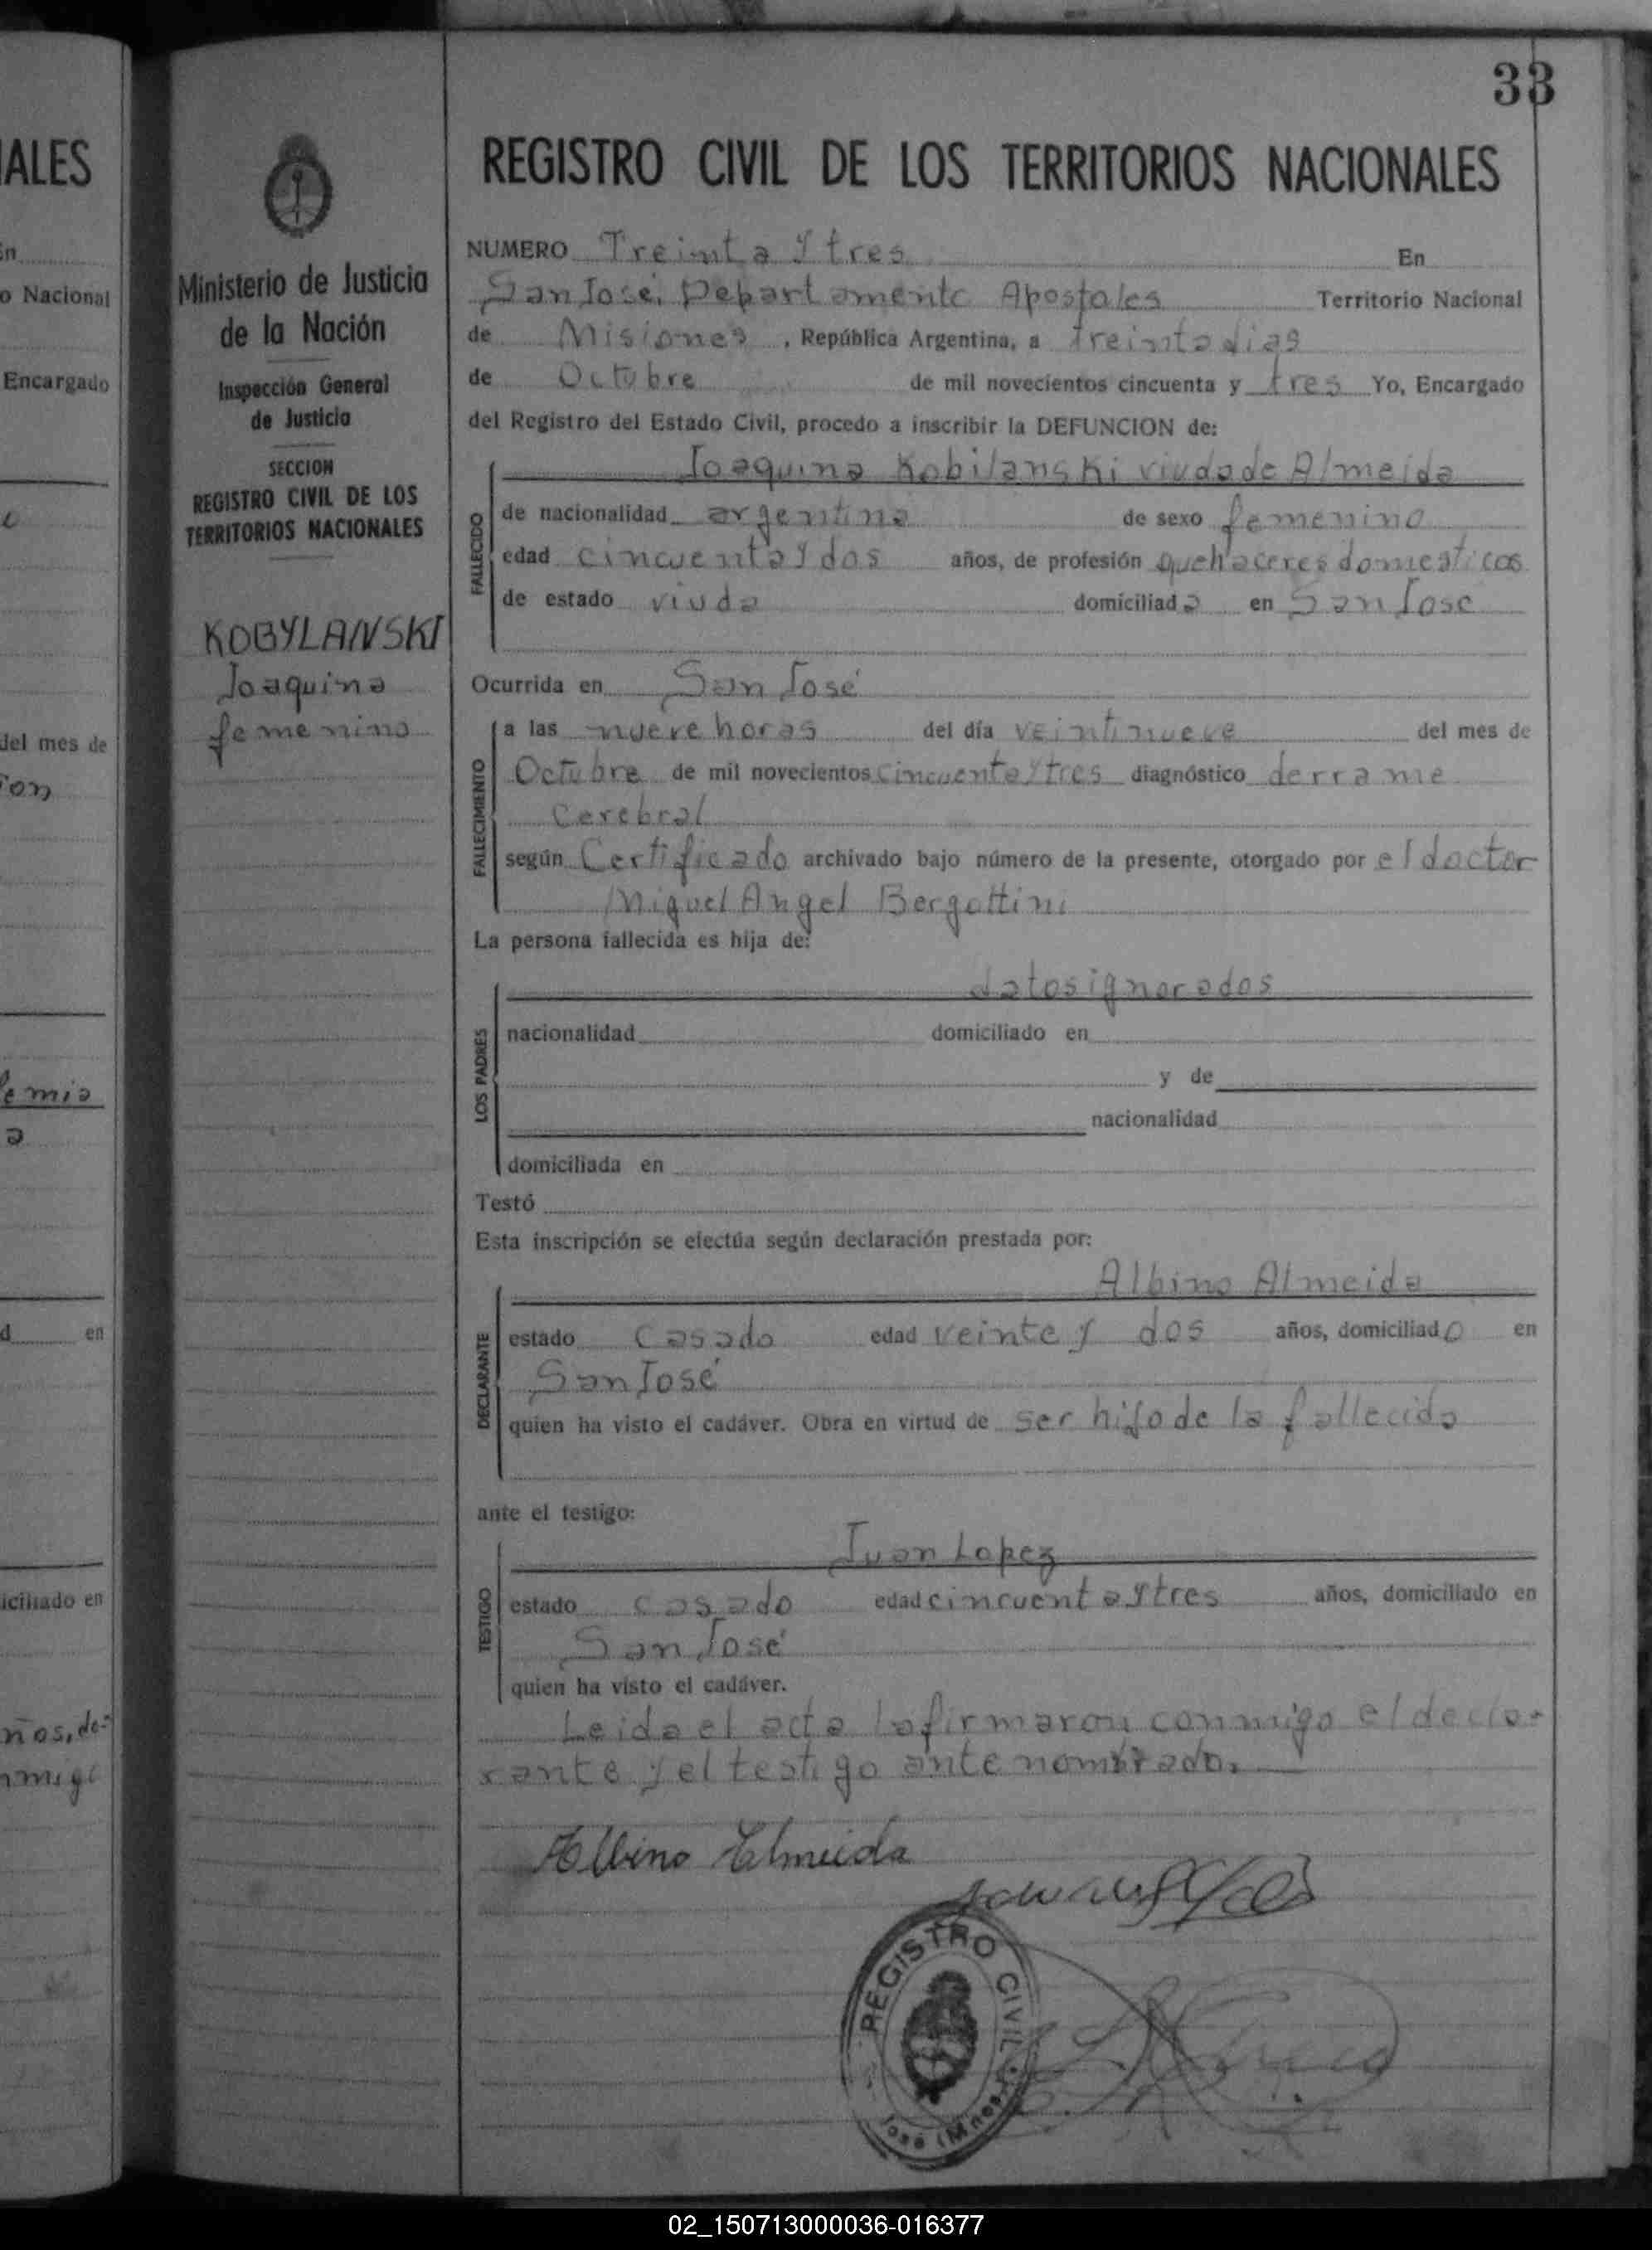 33
REGISTRO CIVIL DE LOS TERRITORIOS NACIONALES
Ministerio de Justicia
de la Nación
Inspección General
de Justicia
SECCION
REGISTRO CIVIL DE LOS
TERRITORIOS NACIONALES
KOBYLANSKI
Joaquina
femenino
NUMERO Treinta y tres En
San José, Departamento Apostoles Territorio Nacional
de Misiones, República Argentina, a treinta dias
de Octubre de mil novecientos cincuenta y tres Yo, Encargado
del Registro del Estado Civil, procedo a inscribir la DEFUNCION de:
Joaquina Kobilanski viuda de Almeida
FALLECIDO
de nacionalidad argentina de sexo femenino
edad cincuenta y dos años, de profesión quehaceres domesticos
de estado viuda domiciliada en San Jose
Ocurrida en San José
FALLECIMIENTO
a las nueve horas del día veintinueve del mes de
Octubre de mil novecientos cincuenta y tres diagnóstico derrame
cerebral
según Certificado archivado bajo número de la presente, otorgado por el doctor
Miguel Angel Bergottini
La persona fallecida es hija de:
LOS PADRES
datos ignorados
nacionalidad domiciliado en
y de
nacionalidad
domiciliada en
Testó
Esta inscripción se efectúa según declaración prestada por:
Albino Almeida
DECLARANTE
estado casado edad veinte y dos años, domiciliado en
San José
quien ha visto el cadáver. Obra en virtud de ser hijo de la fallecida
ante el testigo:
Juan Lopez
TESTIGO
estado casado edad cincuenta y tres años, domiciliado en
San José
quien ha visto el cadáver.
Leida el acta la firmaron conmigo el decla-
rante y el testigo ante nombrado.
Albino Almeida
REGISTRO CIVIL
José (Mnes.)
ALES
En
o Nacional
Encargado
del mes de
ton
emia
a
d en
iciliado en
ños, de-
nmigo
02_150713000036-016377